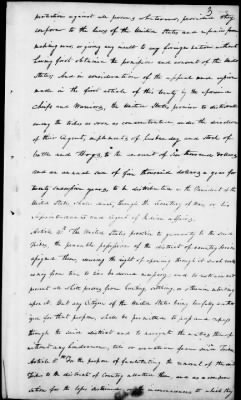 3
protection against all persons whatsoever, provided they
conform to the laws of the United States and refrain from
making war, or giving any insult to any foreign nation without
having first obtained the permission and consent of the United
States. And in consideration of the
made in the first article of this treaty by the aforesaid
Chiefs and Warriors, the United States promise to distribute
among the tribes as soon as concentrated, under the direction
of their agent, implements of husbandry, and stock of
cattle and hogs, to the amount of six thousand dollars,
and an annual sum of five thousand dollars a year for
twenty successive years, to be distributed as the President of the
United States shall direct, through the Secretary of War, or his
Superintendents and Agent of Indian Affairs.
Article 4th The United States promise to guaranty to the said
tribes, the peaceable possession of the district of country herein
assigned them, reserving the right of opening through it such roads
as may from time to time be deemed necessary; and to restrain and
prevent all white persons from hunting, settling, or otherwise intruding
upon it. But any citizen of the United States being lawfully authori-
zed for that purpose, shall be permitted to pass and repass
through the said district, and to navigate the waters thereof
without any hindrance, toll or exaction from said tribes.
Article 5th For the purpose of facilitating the removal of the said
tribes to the district of country allotted them, and as a compen-
sation for the losses sustained, or the inconveniences to which they